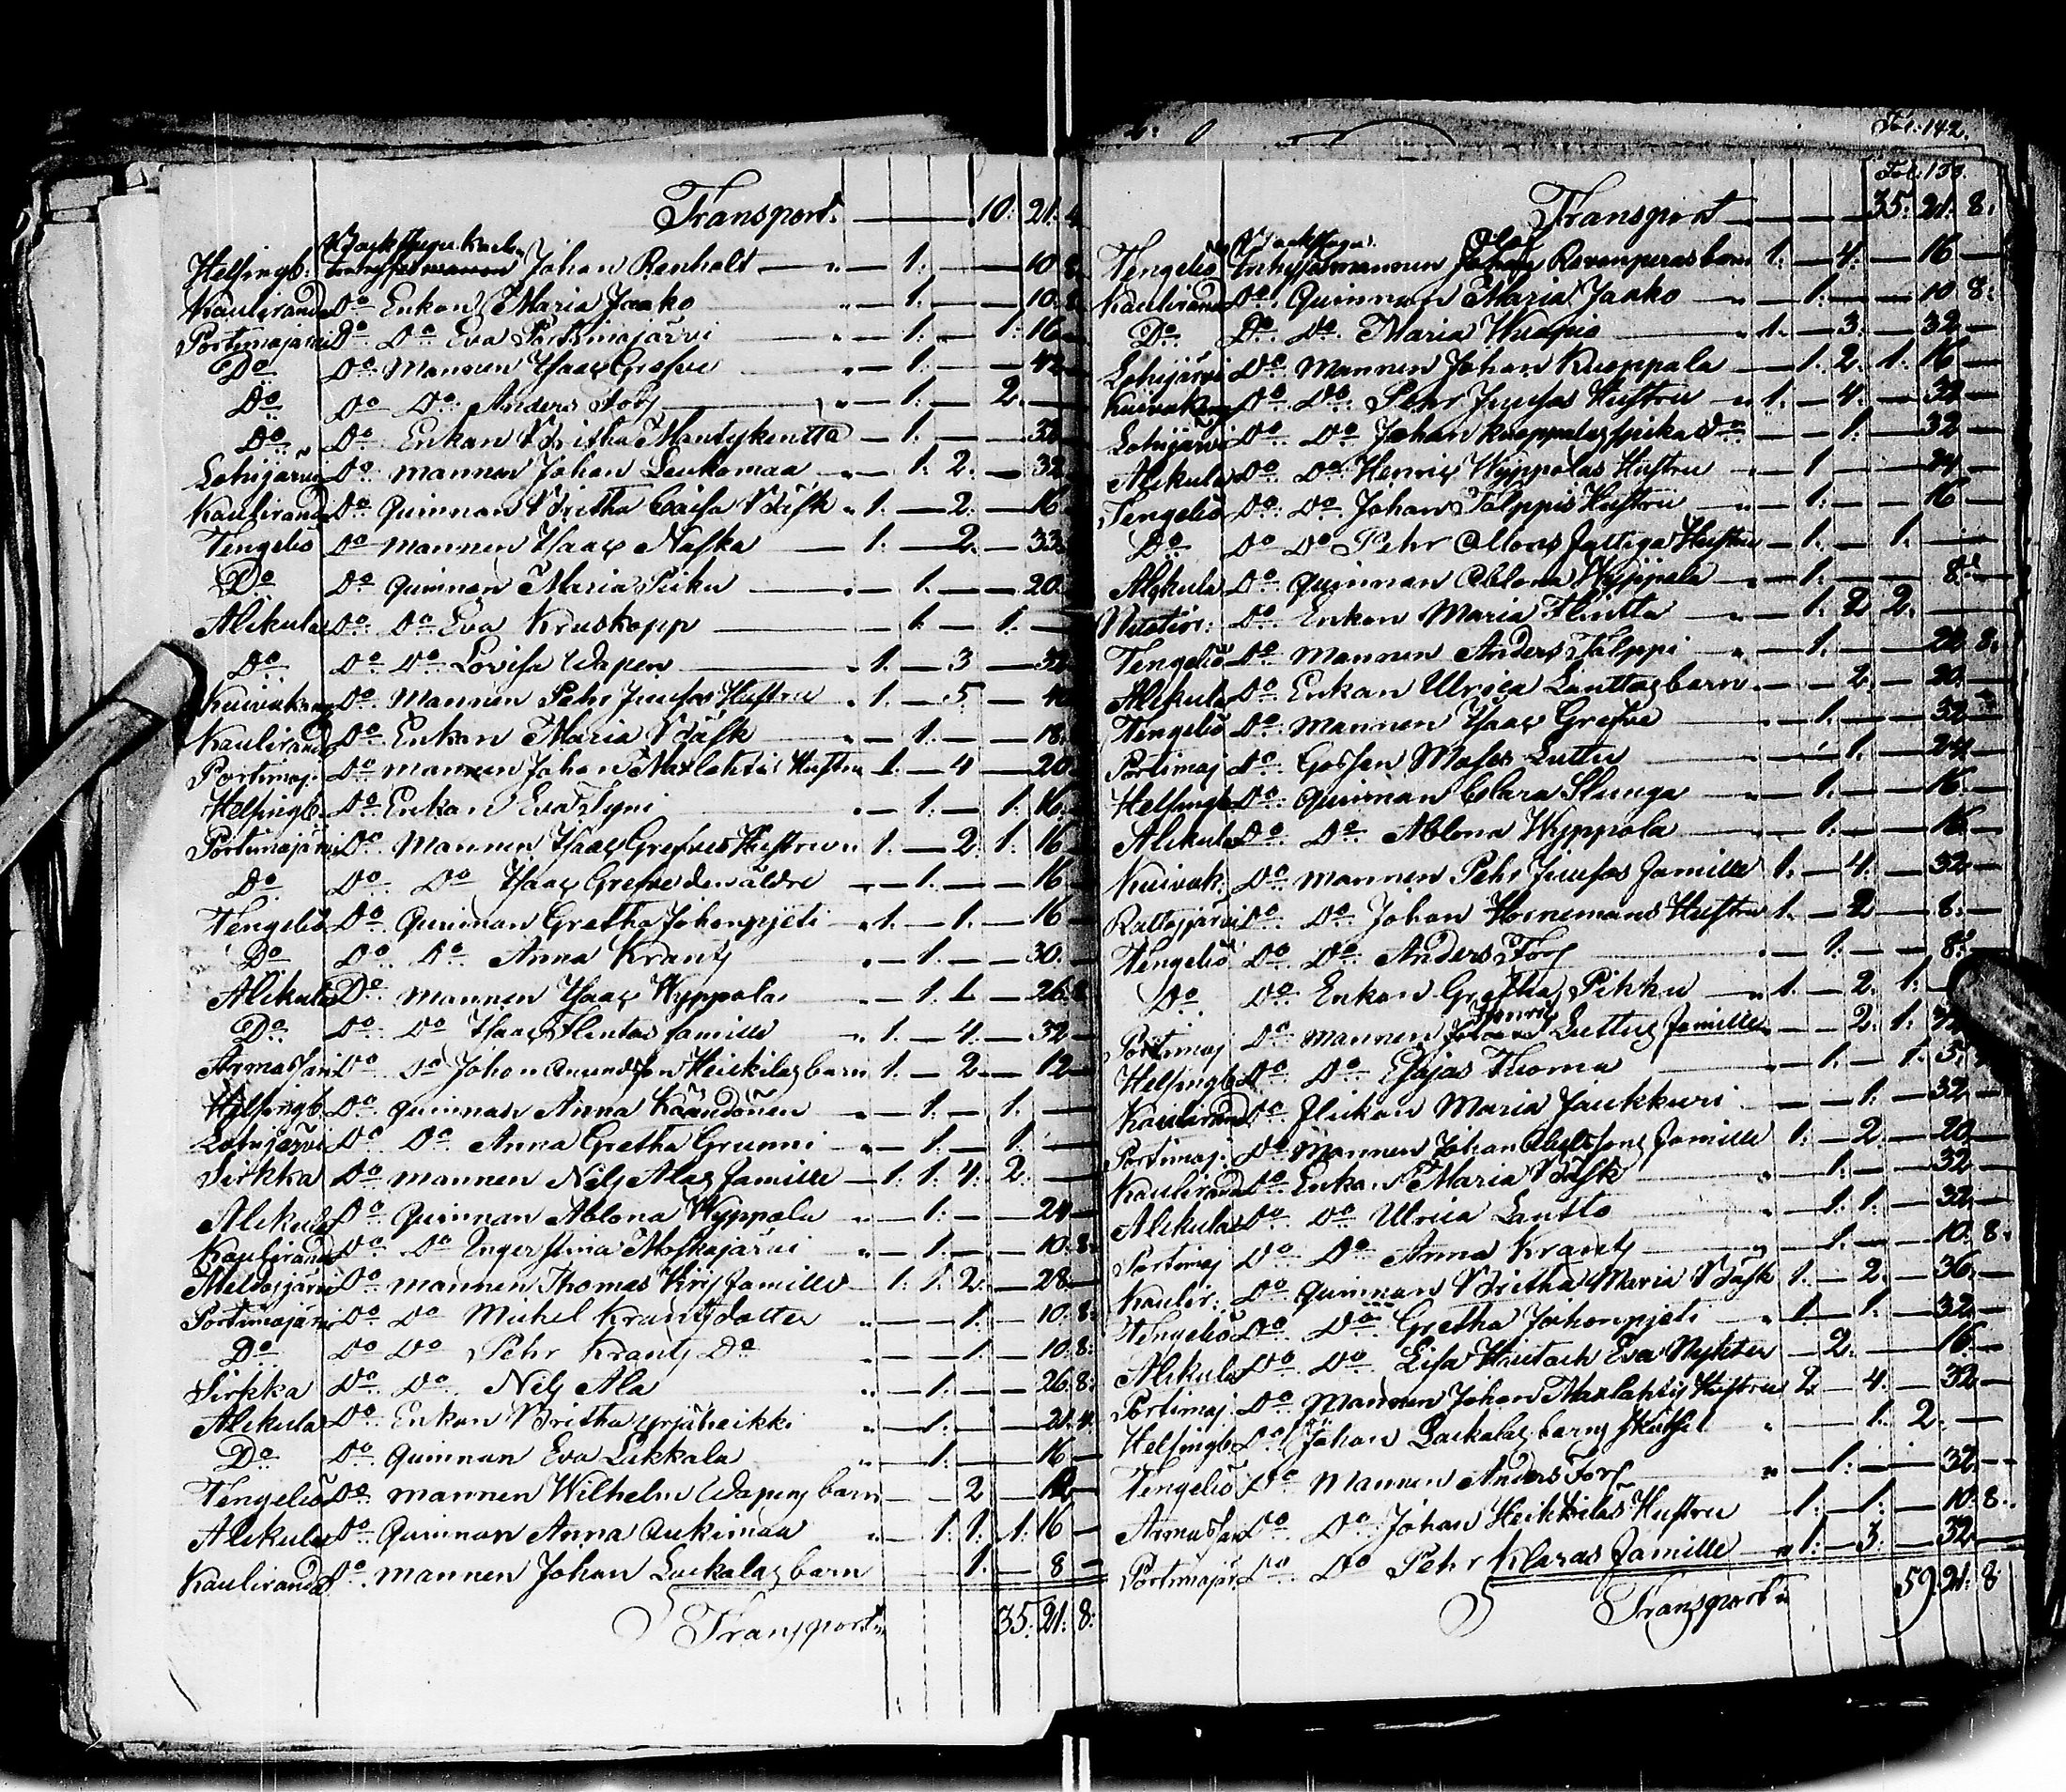 Transport. — 10: 21: 4
Helsingb: Backstugu Karlen Johan Renholt — " — 1: — — 10 8
Kauliranda Do Enkan Maria Jaako " — 1: — — 10: 8
Portimojärvi Do Do Eva Portimojärvi " — 1: — 1: 16 —
Do Do Mannen Isaac Grefve " — 1: — — 42 —
Do Do Do Anders Fors " — 1: — 2: —
Do Do Enkan Britha Mantykentta — 1: — — 32
Lohijärvi Do mannen Johan Leukomaa " — 1: 2: — 32
Kaulirand Do Quinnan Britha Caisa Bäsk " 1: — 2: — 16
Tengelio Do mannen Isaac Naska — 1: — 2: — 33
Do Do quinnan Maria Piiku — 1: — — 20:
Alikula Do Do Eva Kruskopp — 1: — 1: —
Do Do Do Lovisa Wapen " 1: — 3 — 32
Kuivakang Do Mannen Pehr Juusos Hustru " 1: — 5 — 4
Kaulirand Do Enkan Maria Bäsk " — 1: — — 18:
Portimoj: Do mannen Johan Maxlahtis Hustru 1: — 4 — 20
Helsingb: Do Enkan Eva Tyni " — 1: — 1: 16
Portimojärvi Do Mannen Isaac Grefves Hustru " 1: — 2: 1: 16
Do Do Do Isaac Grefve den äldre " — 1: — — 16
Tengelio Do Quinnan Gretha Johonpjeti " 1: — 1: — 16
Do Do Do Anna Krantz " — 1: — — 30: —
Alikula Do mannen Isaac Wyppola " — 1: 1 — 26: 8
Do Do Do Isaac Flintas familie " 1: — 4: — 32 —
Armasjärvi Do Do Johan Heickilas barn 1: — 2: — 12 —
Helsingb: Do quinnan Anna Kaandonen " — 1: — 1: —
Lohijärvi Do Do Anna Gretha Grunni " — 1: — 1: —
Sirkka Do mannen Nils Alas familie — 1: 1: 4: 2: —
Alikula Do Quinnan Ablona Wyppola " — 1: — — 24 —
Kaulirand Do Do Inger Stina Moskajärvi " — 1: — — 10: 8:
Do mannen Thomas Krij familie — 1: 1: 2: — 28: —
Portimojärvi Do Do Michel Krantz dotter — — 1: — 10: 8:
Do Do Do Pehr Krantz Do " — — 1: — 10: 8:
Sirkka Do Do Nils Ala " — 1: — — 26: 8:
Alikula Do Enkan Britha Yrjäheikki " — 1: — — 21: 4.
Do Do Quinnan Eva Lukkala " — 1: — — 16 —
Tengelio Do mannen Wilhelm Wapens barn — — 2 — 12 —
Alikula Do Quinnan Anna Aukimaa " — 1: 1: 1: 16 —
Kaulirand Do mannen Johan Laukalas barn 1: — 8 —
Transport " 35: 21: 8:
Fol: 142.
Fol: 133.
Transport — 35: 21: 8:
Tengelio Backstugu mannen Olof Ravanperas barn 1: — 4: — 16 —
Kaulirand Do Quinnan Maria Jaako — " — 1: — — 10 8:
Do Do Do Maria Kuapio " 1: — 3: — 32 —
Lohijärvi Do Mannen Johan Kuoppala — 1: 2: 1: 16 —
Kuivakang Do Do Pehr Juusos Hustru — " 1: — 4: — 32 —
Lohijärvi Do Do Johan Kuoppalas Do — — 1: — 32 —
Alikula Do Do Henric Wyppolas Hustru " — 1 — — 24 —
Tengelio Do Do Johan Talppis Hustru " — 1: — — 16 —
Do Do Do Pehr Hustru — 1: — 1: —
Alikula Do quinnan Ablona Wyppola " — 1: — — 8: —
Do Enkan Maria Flintta " — 1: 2 2: —
Tengelio Do Mannen Anders Talppi " — 1: — — 20 8:
Alikula Do Enkan Ulrica Lanttos barn — — 2: — 20 —
Tengelio Do Mannen Isaac Grefve — 1: — — 32 —
Portimoj Do Gossen Moses Luttu — — 1: — 24 —
Helsingb Do quinnan Clara Slunga " — 1: — — 16 —
Alikula Do Do Ablona Wyppola — 1: — — 16 —
Kuivak: Do mannen Pehr Juusos familie 1: — 4: — 32 —
Rattosjärvi Do Do Johan Hornemans Hustru 1: — 2 — 8: —
Tengelio Do Do Anders Fors " — 1: — — 8:
Do Do Enkan Gretha Pihku " 1: — 2: 1:
Portimoj Do mannen Henric Luttus familie — — 2: 1:
Helsingb Do Do Esajas Thoma " — 1: — 1: 5:
Kaulirand Do Flickan Maria Jaukkuri — — 1: — 32 —
Portimoj: Do Mannen Johan familie 1: — 2: — 20 —
Kaulirand Do Enkan Maria Bäsk " — 1: — — 32 —
Alikula Do Do Ulrica Lantto " — 1: 1: — 32 —
Portimoj Do Do Anna Krantz " — 1: — — 10: 8:
Kaulir: Do quinnan Britha Maria Bäsk 1: — 2: — 36: —
Tengelio Do Do Gretha Johonpjeti " 1: — 1: — 32 —
Alikula Do Do Lisa ach Eva Nykter — 2: — — 16: —
Portimoj Do Mannen Johan Maxlahtis Hustru 1: — 4: — 32 —
Helsingb Do Johan Laukalas barns " — — 1: 2: —
Tengelio Do Mannen Anders Fors " — 1: — — 32 —
Armasjär Do Do Johan Heikkilas Hustru — 1: — 1: — 10: 8:
Portimojär Do Do Pehr Klaras familie " 1: — 3: — 32 —
Transport " 59: 21: 8